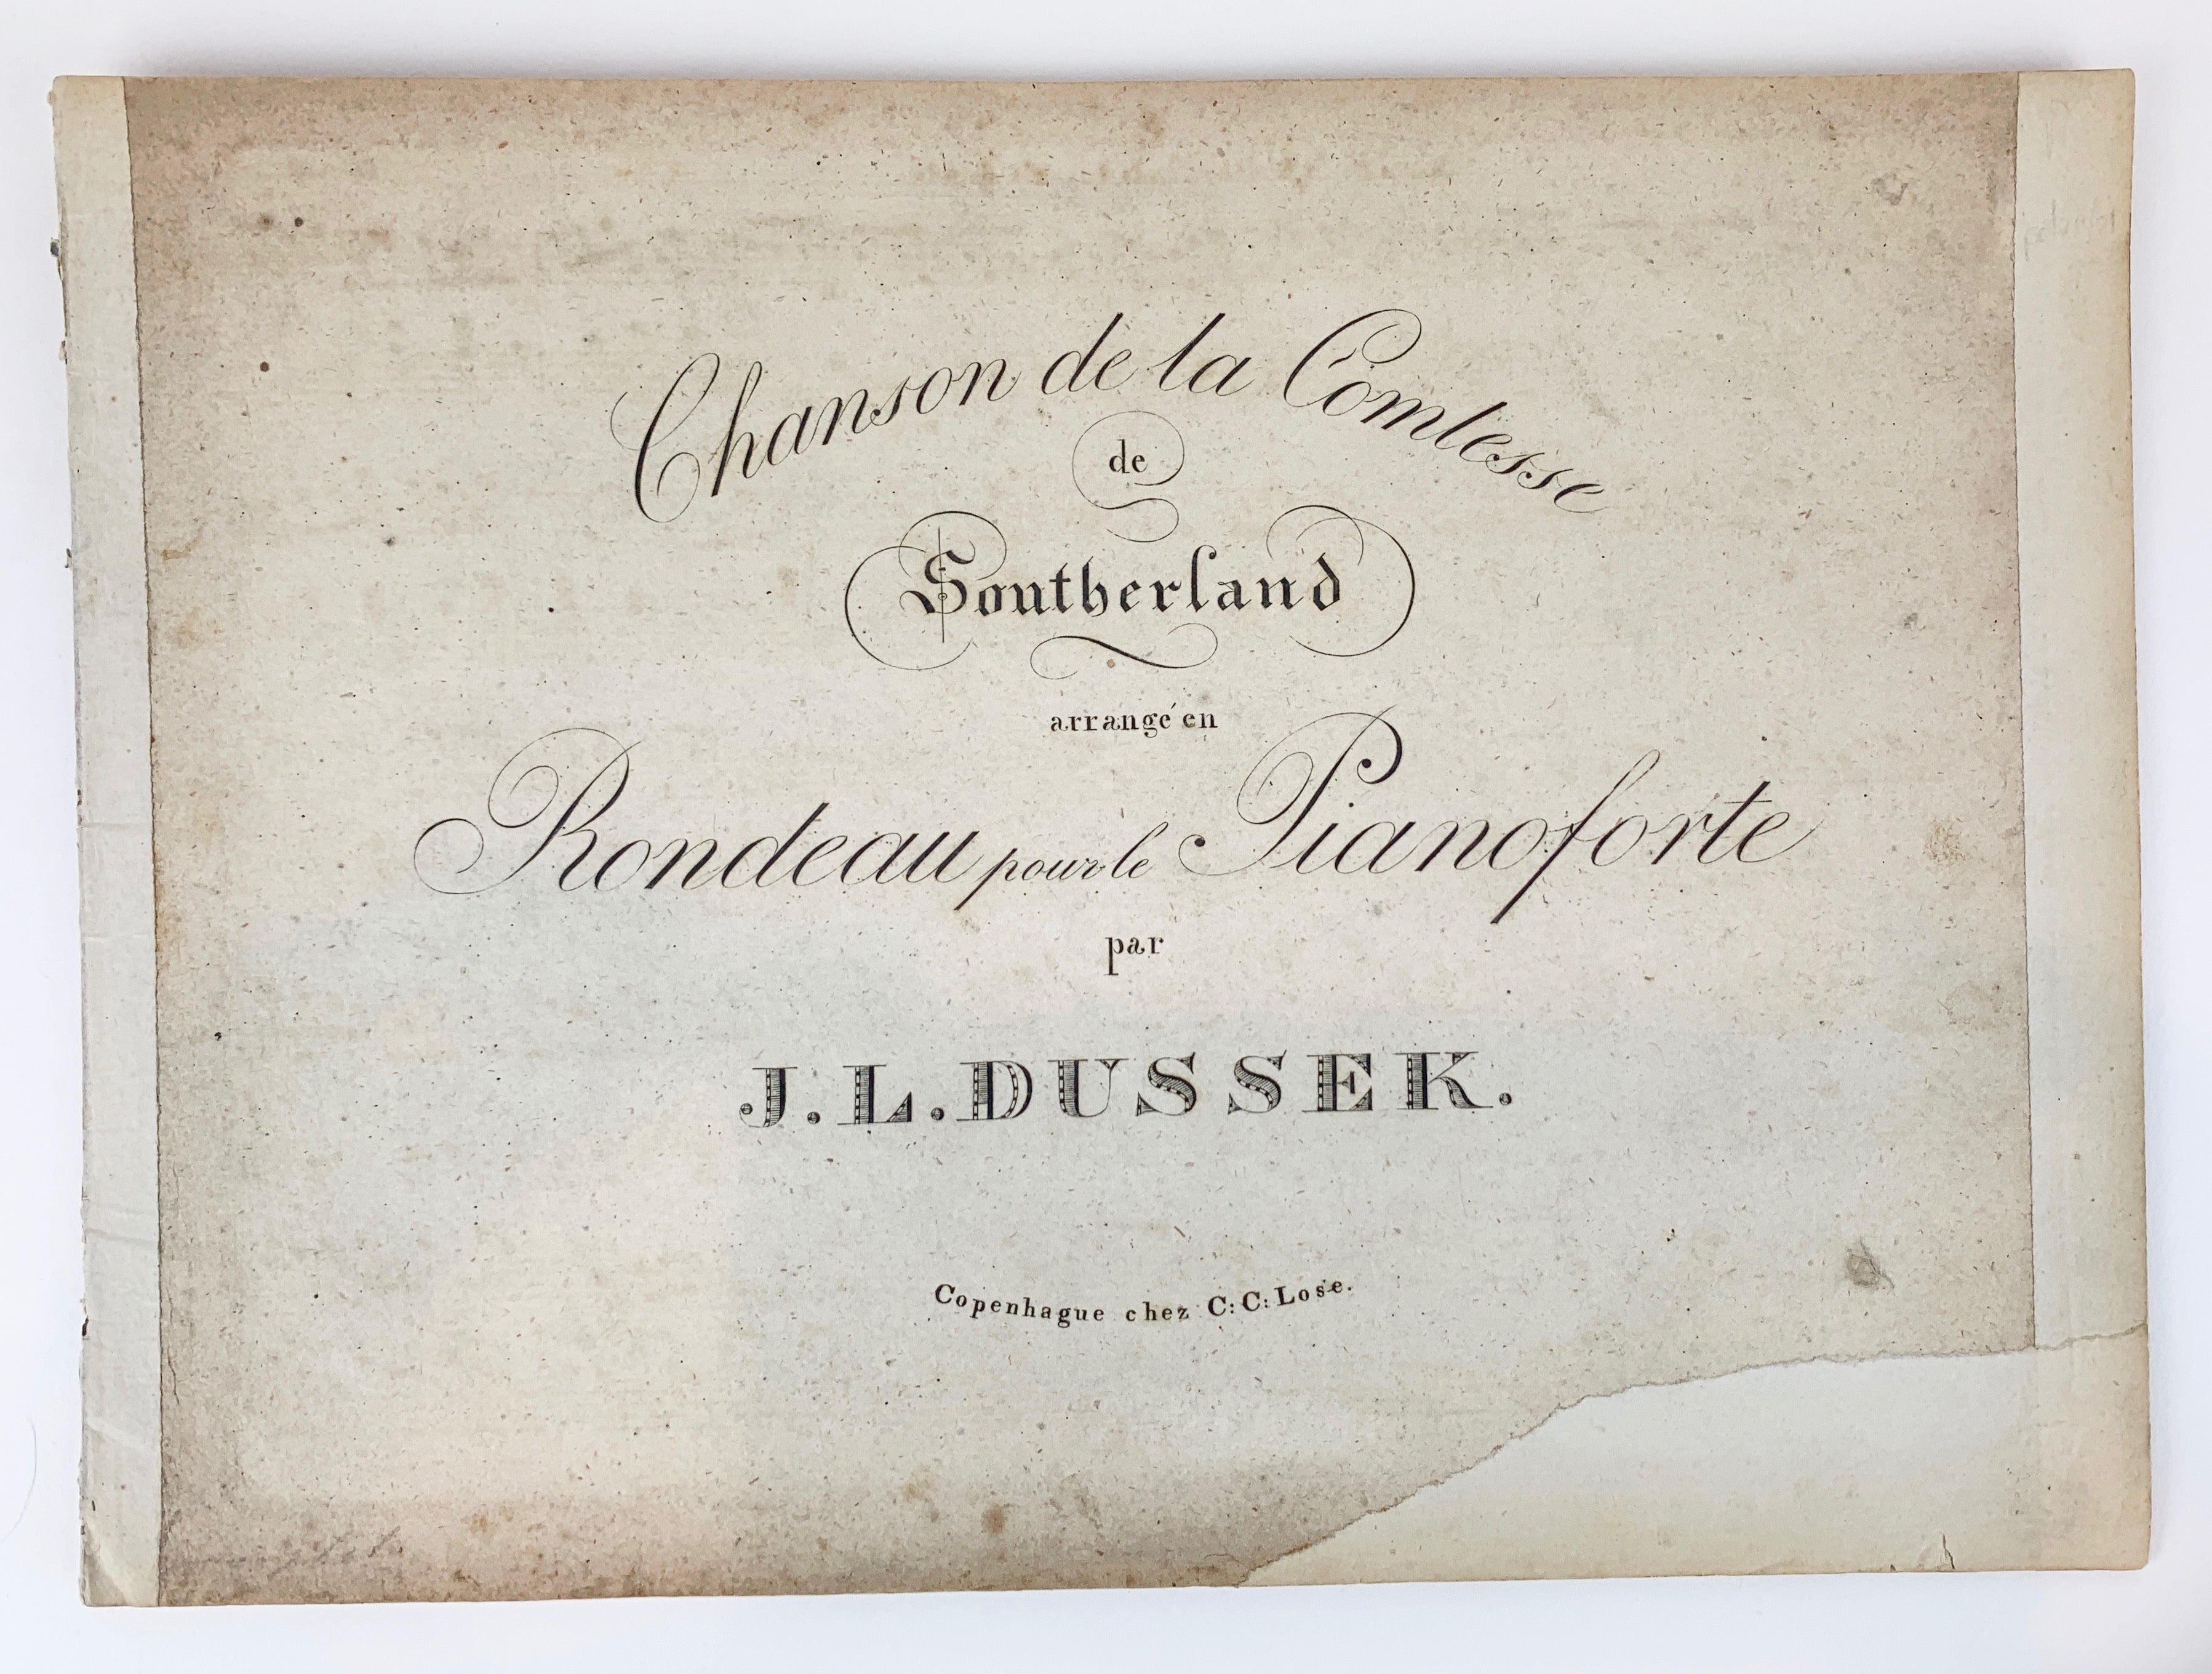 Chanson de la Comtesse
de
Southerland
arrangé en
Rondeau pour le Pianoforte
par
J. L. DUSSEK.
Copenhague chez C: C: Lose.